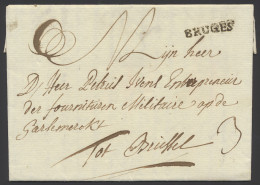 BRUGES
Mijn heer
D'Heer Detriul Vent Entrepreneur
der fournituren Militaire op de
Garsemerckt
Tot Brussel
3